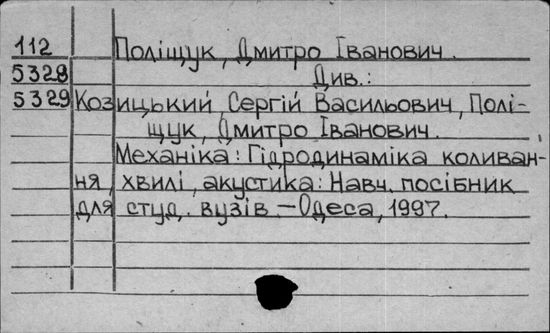 112 Поліщук, Дмитро Іванович.
5328 Див.:
5329 Козицький, Сергій Васильович, Полі-
щук, Дмитро Іванович.
Механіка: Гідродинаміка коливан-
ня, хвилі, акустика: Навч. посібник
для студ. вузів. – Одеса, 1997.